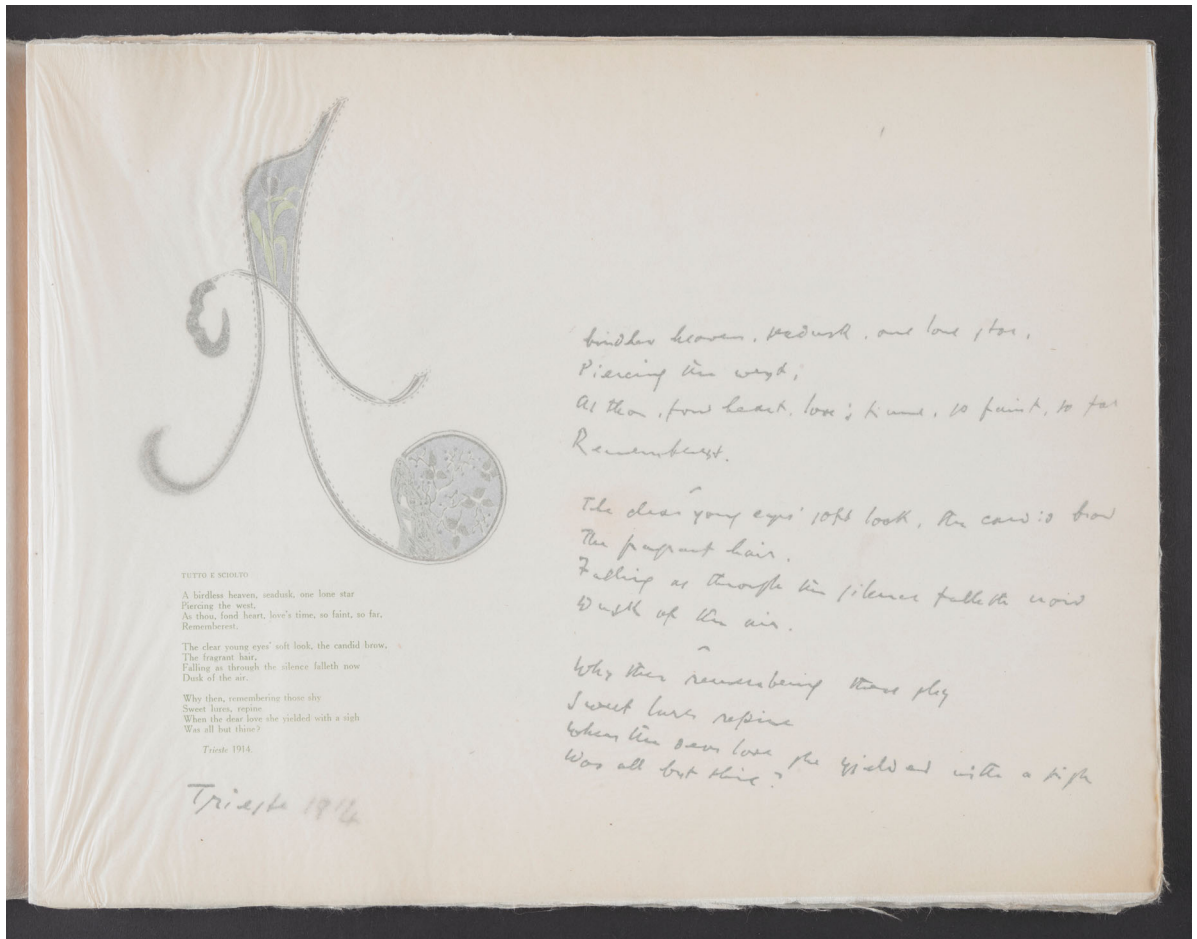 A
TUTTO È SCIOLTO
A birdless heaven, seadusk, one lone star
Piercing the west,
As thou, fond heart, love's time, so faint, so far,
Rememberest.
The clear young eyes' soft look, the candid brow,
The fragrant hair,
Falling as through the silence falleth now
Dusk of the air.
Why then, remembering those shy
Sweet lures, repine
When the dear love she yielded with a sigh
Was all but thine?
Trieste 1914.
Trieste 1914
birdless heaven, seadusk, one lone star,
Piercing the west,
As thou, fond heart, love's time, so faint, so far
Rememberest.
The clear young eyes' soft look, the candid brow
The fragrant hair,
Falling as through the silence falleth now
Dusk of the air.
Why then remembering those shy
Sweet lures repine
When the dear love she yielded with a sigh
Was all but thine?